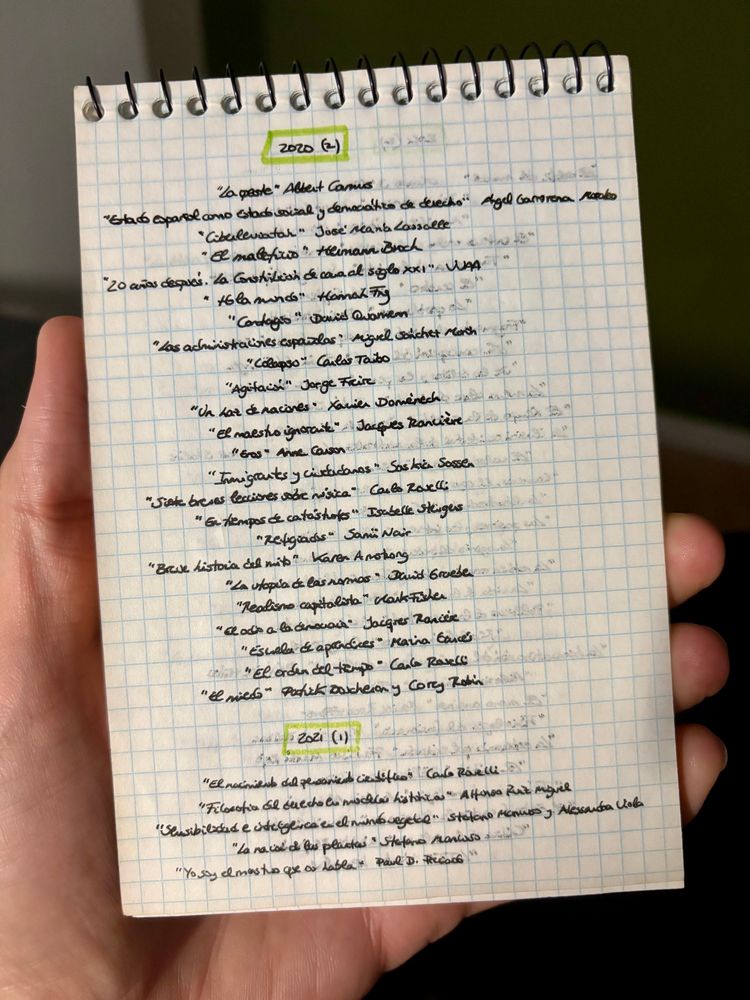 2020 (2)
"La peste" Albert Camus
"Estado español como estado social y democrático de derecho" Ángel Garrorena Morales
"Ciberleviatán" José María Lassalle
"El maleficio" Hermann Broch
"20 años después. La Constitución de cara al siglo XXI" VVAA
"Hola mundo" Hannah Fry
"Contagio" David Quammen
"Las administraciones españolas" Miguel Sánchez Morón
"Colapso" Carlos Taibo
"Agitación" Jorge Freire
"Un haz de naciones" Xavier Domènech
"El maestro ignorante" Jacques Rancière
"Eros" Anne Carson
"Inmigrantes y ciudadanos" Saskia Sassen
"Siete breves lecciones sobre física" Carlo Rovelli
"En tiempos de catástrofes" Isabelle Stengers
"Refugiados" Samï Naïr
"Breve historia del mito" Karen Armstrong
"La utopía de las normas" David Graeber
"Realismo capitalista" Mark Fisher
"El odio a la democracia" Jacques Rancière
"Escuela de aprendices" Marina Garcés
"El orden del tiempo" Carlo Rovelli
"El miedo" Patrick Boucheron y Corey Robin
2021 (1)
"El nacimiento del pensamiento científico" Carlo Rovelli
"Filosofía del derecho en modelos históricos" Alfonso Ruiz Miguel
"Sensibilidad e inteligencia en el mundo vegetal" Stefano Mancuso y Alessandra Viola
"La nación de las plantas" Stefano Mancuso
"Yo soy el monstruo que os habla" Paul B. Preciado